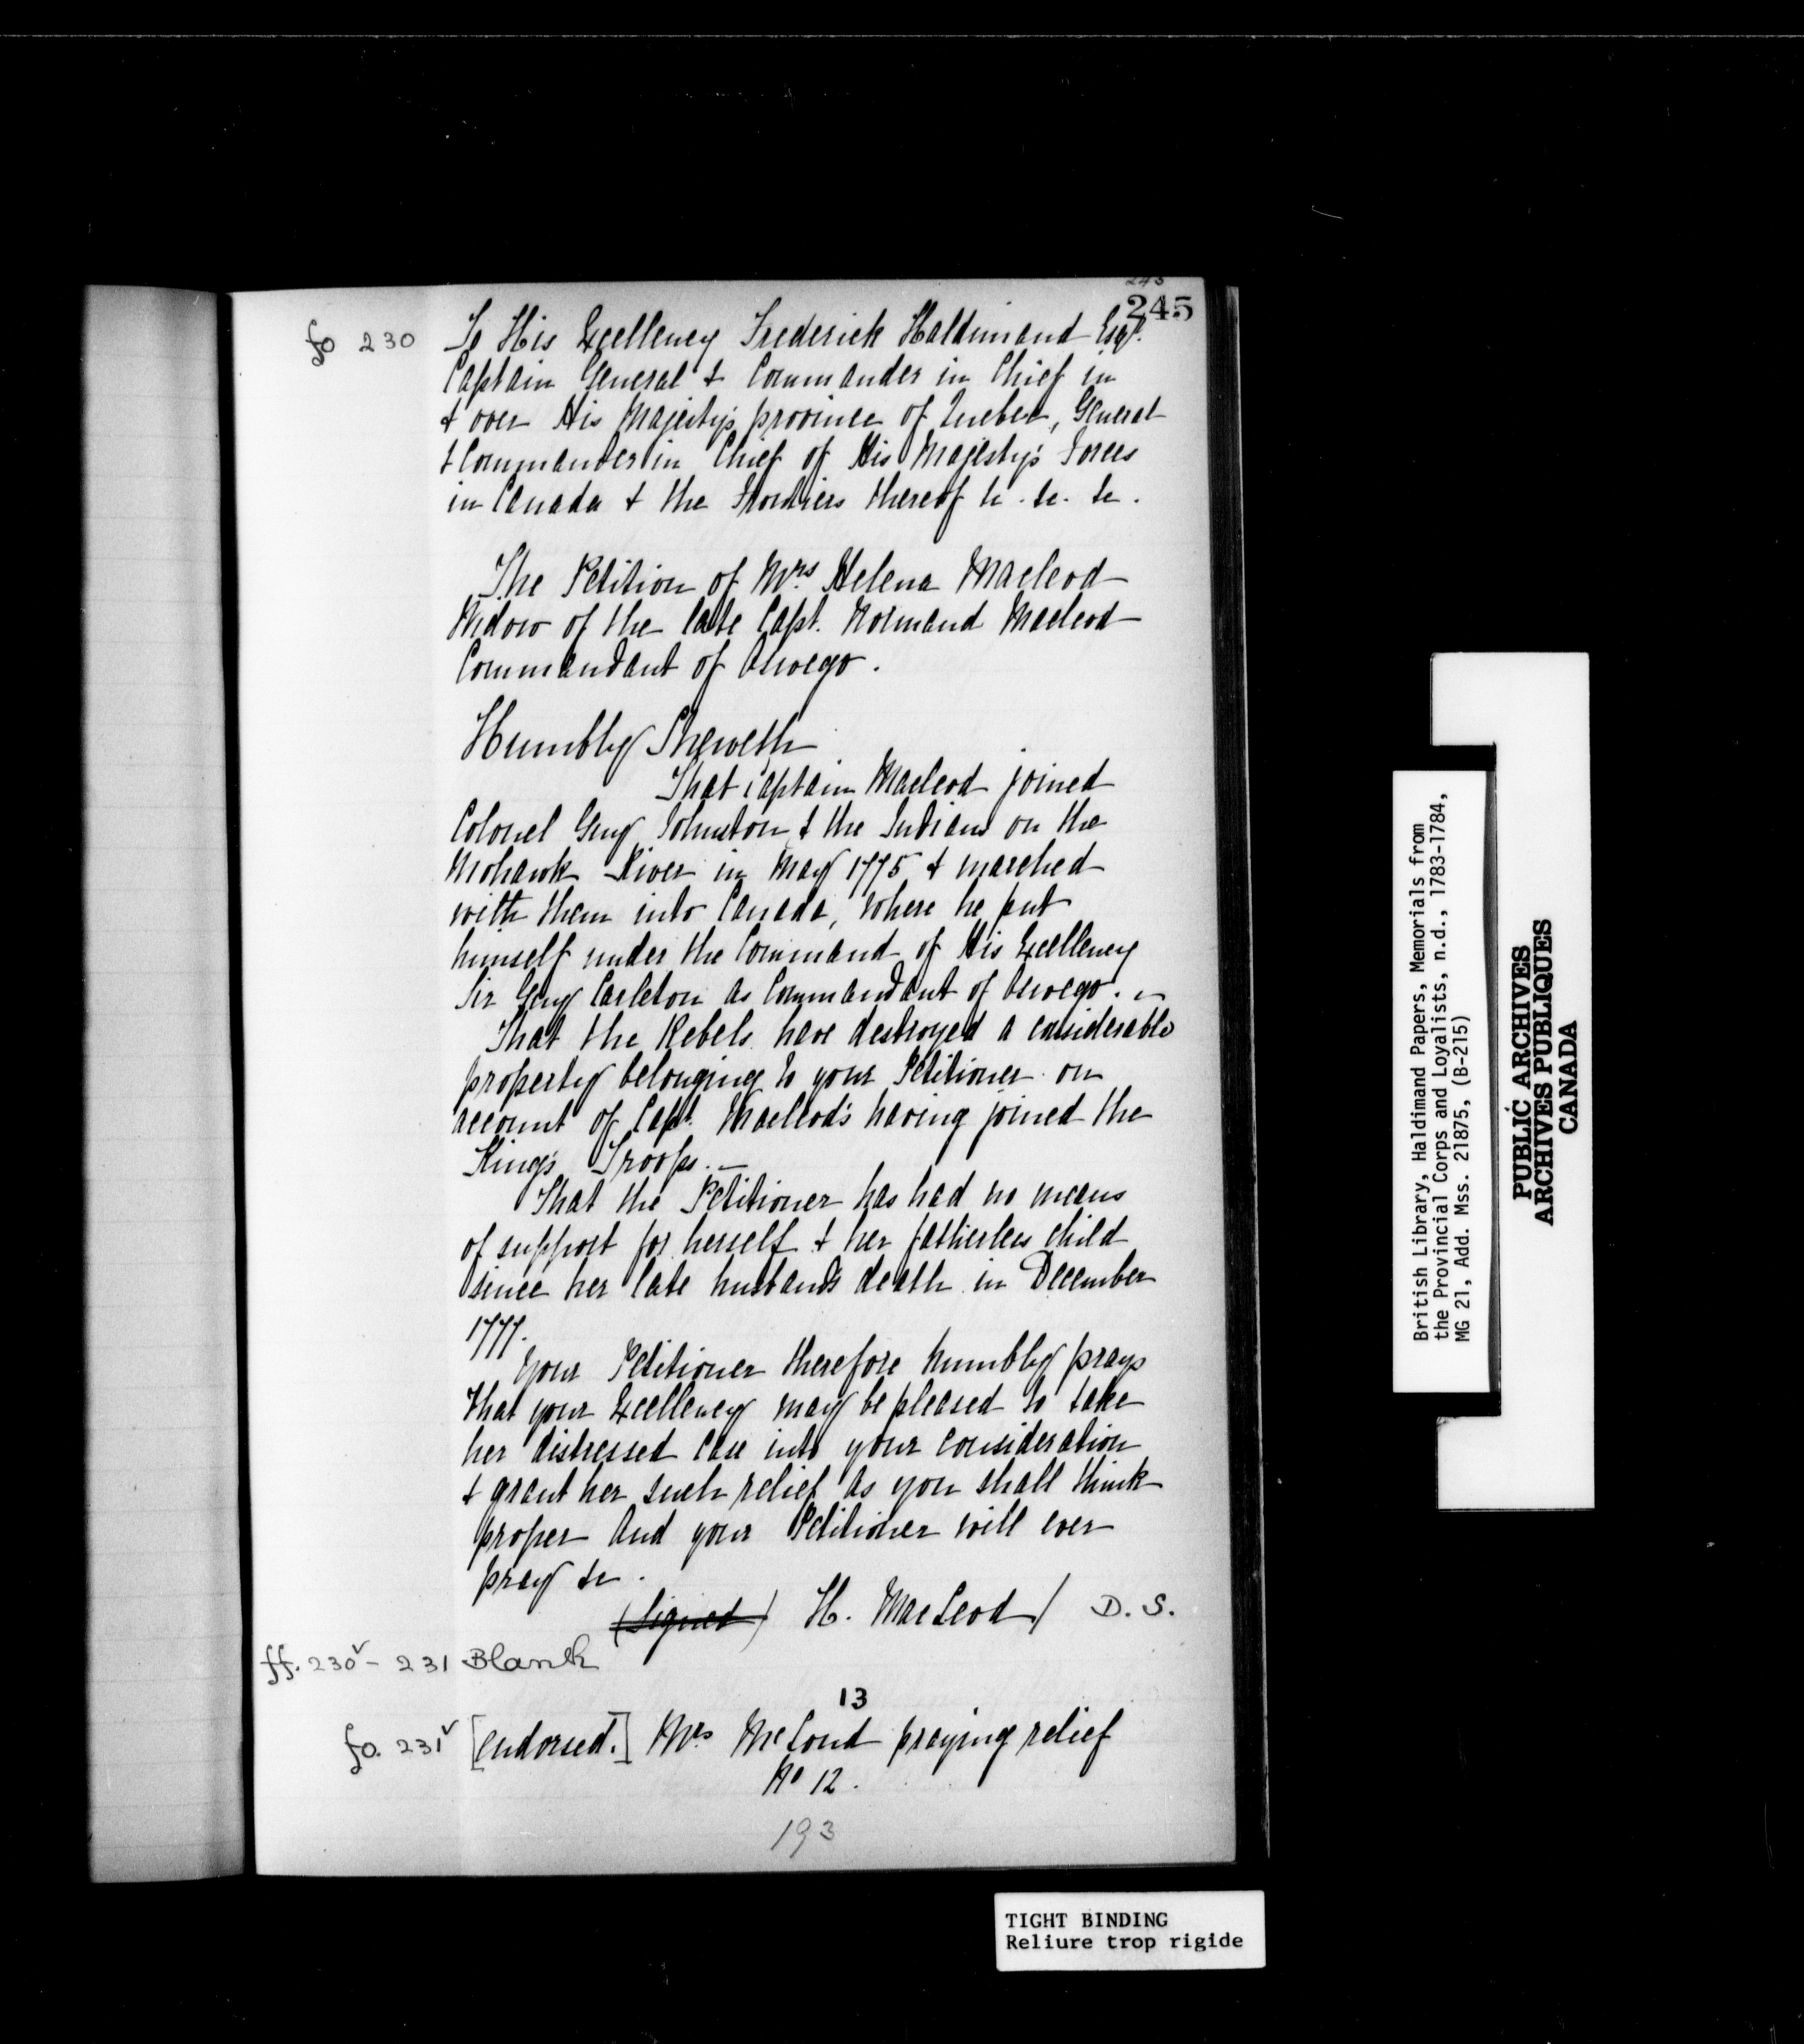 245
245
fo 230 To His Excellency Frederick Haldimand Esqr.
Captain General & Commander in Chief in
& over His Majesty's province of Quebec, General
& Commander in Chief of His Majesty's Forces
in Canada & the Frontiers thereof &c. &c. &c.
The Petition of Mrs Helena Macleod
Widow of the late Capt. Normand Macleod
Commandant of Oswego.
Humbly Sheweth
That Captain Macleod joined
Colonel Guy Johnston & the Indians on the
Mohawk River in May 1775 & marched
with them into Canada, where he put
himself under the Command of His Excellency
Sir Guy Carleton as Commandant of Oswego. –
That the Rebels have destroyed a considerable
property belonging to your Petitioner on
account of Capt. Macleod's having joined the
King's Troops. –
That the Petitioner has had no means
of support for herself & her fatherless child
since her late husband's death in December
1777.
Your Petitioner therefore humbly prays
that your Excellency may be pleased to take
her distressed case into your consideration
& grant her such relief as you shall think
proper And your Petitioner will ever
pray &c.
(Signed) H. MacLeod / D. S.
ff. 230v - 231 Blank
13
fo. 231v [endorsed.] Mrs McLoud praying relief
No 12.
193
British Library, Haldimand Papers, Memorials from
the Provincial Corps and Loyalists, n.d., 1783-1784,
MG 21, Add. Mss. 21875, (B-215)
PUBLIC ARCHIVES
ARCHIVES PUBLIQUES
CANADA
TIGHT BINDING
Reliure trop rigide